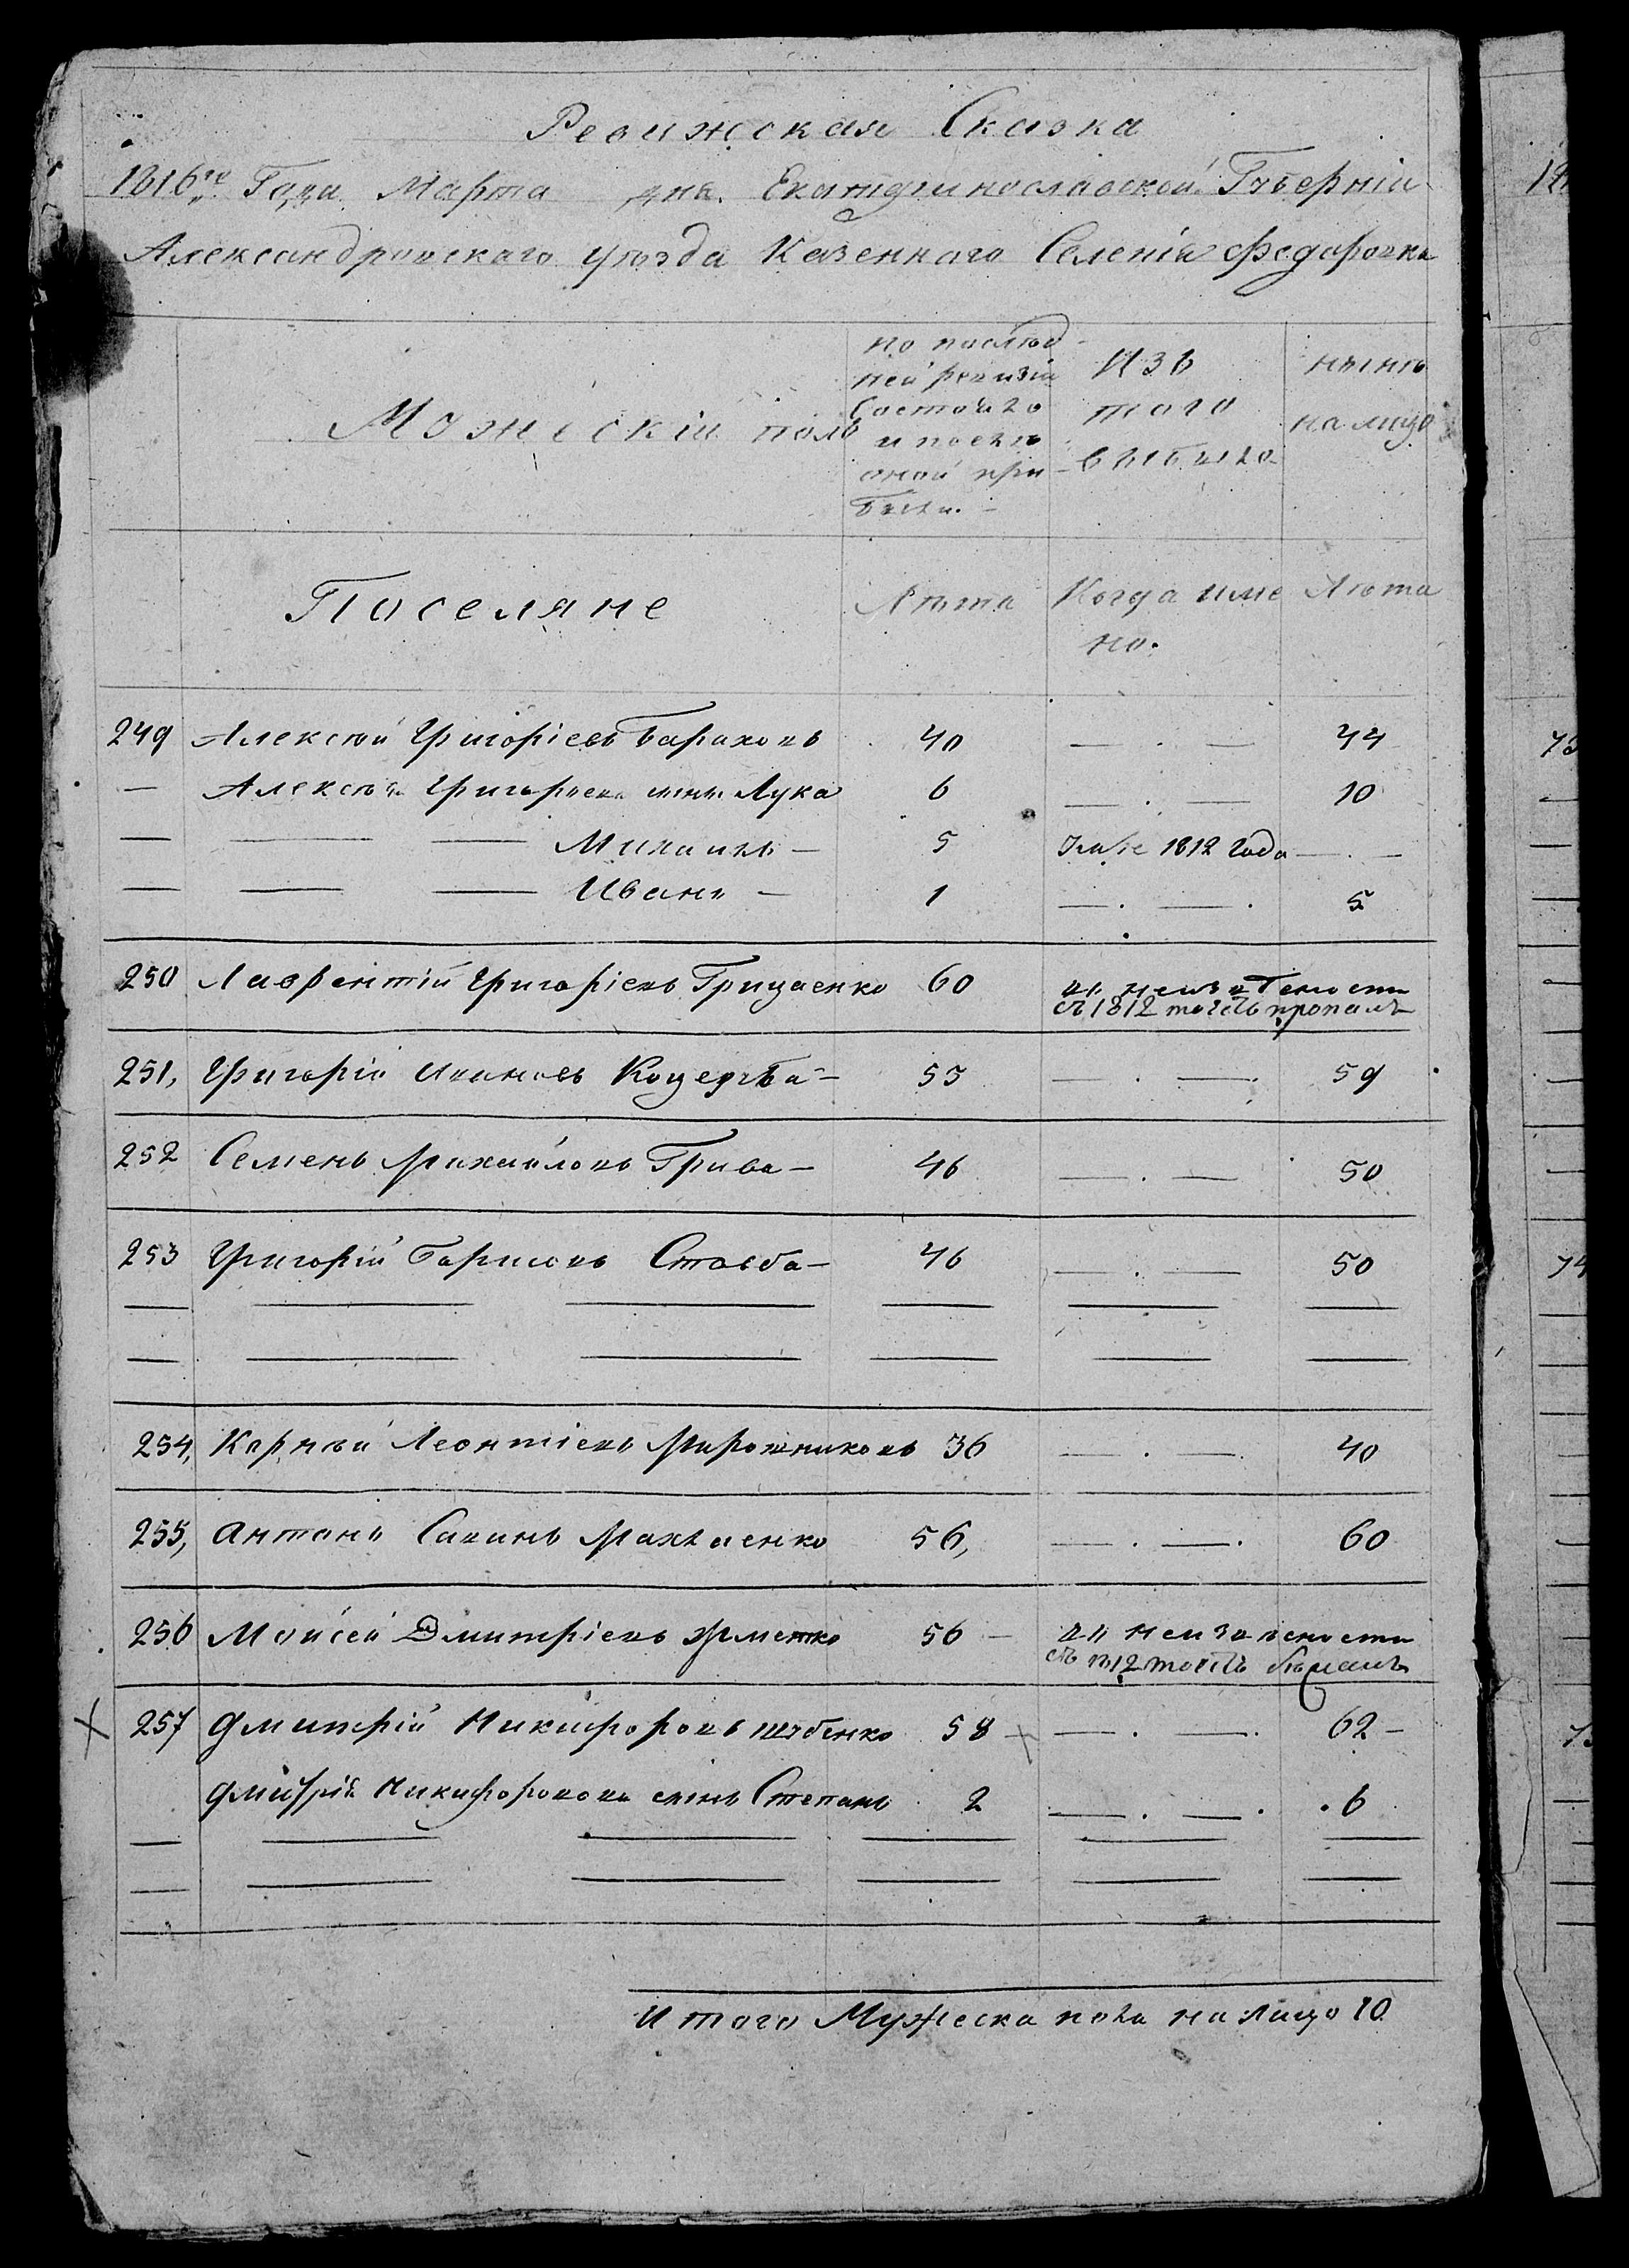 Ревижская Сказка
1816го Года Марта дня. Екатеринославской Губерніи
Александровскаго уезда Казеннаго Селенія Федоровки
Мужескій полъ
по послед-
ней ревизіи
Состояло
и после
оной при-
было.
Изъ
того
выбыло
ныне
на лицо
Поселяне
Лета
Когда име
но.
Лета
249 Алексей Григоріевъ 40 — . — 44
— Алексея Григорьева сынъ Лука 6 — . — 10
— — — Михаилъ — 5 1812 Года — . —
— — — Иванъ — 1 — . — . 5
250 Лаврентій Григоріевъ Грицаенко 60
съ 1812 пропалъ
251, Григорій Ивановъ Коцерба — 55 — . — . 59
252 Семенъ Михайловъ Грива — 46 — . — 50
253 Григорій Борисовъ — 46 — . — 50
254, Корней Леонтіевъ Мирошниковъ 36 — . — . 40
255, Антонъ Савинъ 56, — . — . 60
256 Мойсей Дмитріевъ 56 —
257 Дмитрій Никифоровъ Шубенко 58 — . — . 62 —
Дмитрія Никифорова сынъ Степанъ 2 — . — . 6
Итого Мужеска пола на лицо 10